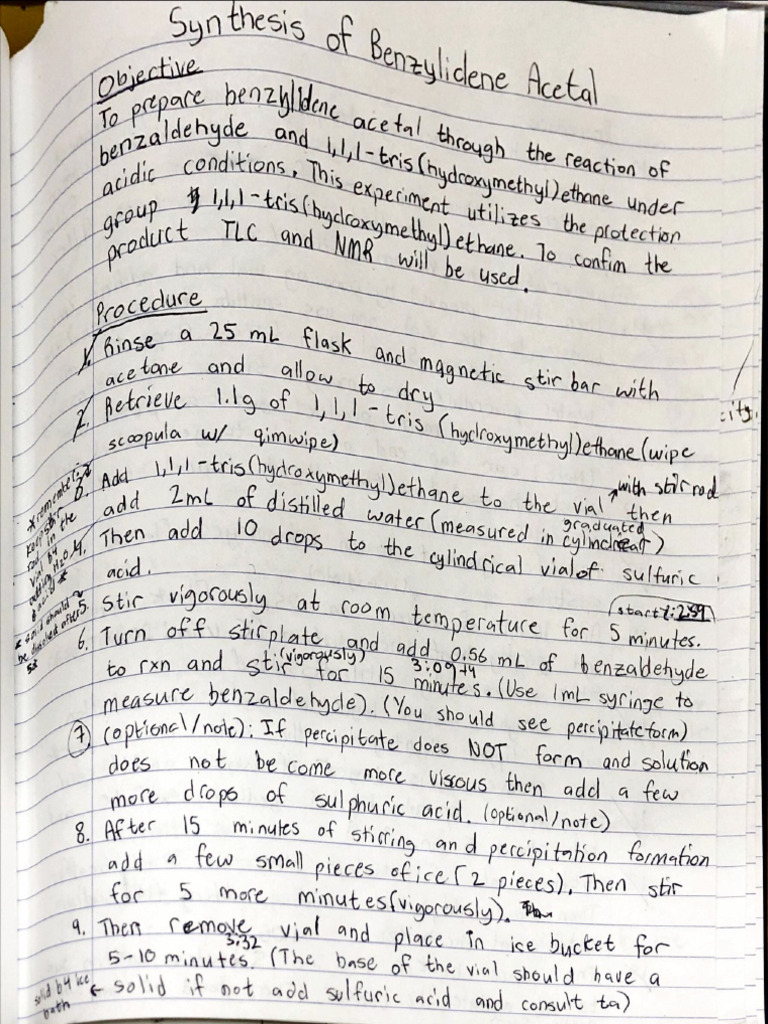 Synthesis of Benzylidene Acetal
Objective
To prepare benzylidene acetal through the reaction of
benzaldehyde and 1,1,1-tris(hydroxymethyl)ethane under
acidic conditions. This experiment utilizes the protection
group 1,1,1-tris(hydroxymethyl)ethane. To confim the
product TLC and NMR will be used.
Procedure
1. Rinse a 25 mL flask and magnetic stir bar with
acetone and allow to dry
2. Retrieve 1.1g of 1,1,1-tris (hydroxymethyl)ethane (wipe
scoopula w/ qimwipe)
3. Add 1,1,1-tris(hydroxymethyl)ethane to the vial with stir rod then
add 2mL of distilled water (measured in graduated cylinder)
4. Then add 10 drops to the cylindrical vial of sulfuric
acid.
5. Stir vigorously at room temperature for 5 minutes. (start: 2:59
6. Turn off stirplate and add 0.56 mL of benzaldehyde
to rxn and stir (vigorously) for 15 minutes. 3:09 (Use 1mL syringe to
measure benzaldehyde). (You should see percipitate form)
7 (optional/note): If percipitate does NOT form and solution
does not be come more viscous then add a few
more drops of sulphuric acid. (optional/note)
8. After 15 minutes of stirring and percipitation formation
add a few small pieces of ice (2 pieces). Then stir
for 5 more minutes (vigorously).
9. Then remove vial and place in ice bucket for
5-10 minutes. 3:32 (The base of the vial should have a
solid if not add sulfuric acid and consult ta)
*remember:
keep stir
rod in the
vial by
adding H2O
& acid *
* solid should
be dissolved after 5.
solid by ice
bath
city.